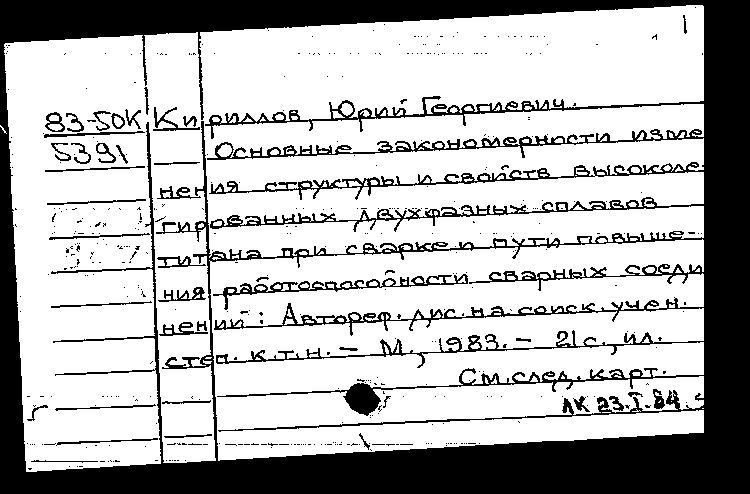 1
83-50К Кириллов, Юрий Георгиевич.
5391 Основные закономерности изме
нения структуры и свойств высоколе-
гированных двухфазных сплавов
титана при сварке и пути повыше-
ния работоспособности сварных соеди
нений: Автореф. дис. на соиск. учен.
степ. к.т.н. – М., 1983. – 21с., ил.
См. след. карт.
ЛК 23.I.84